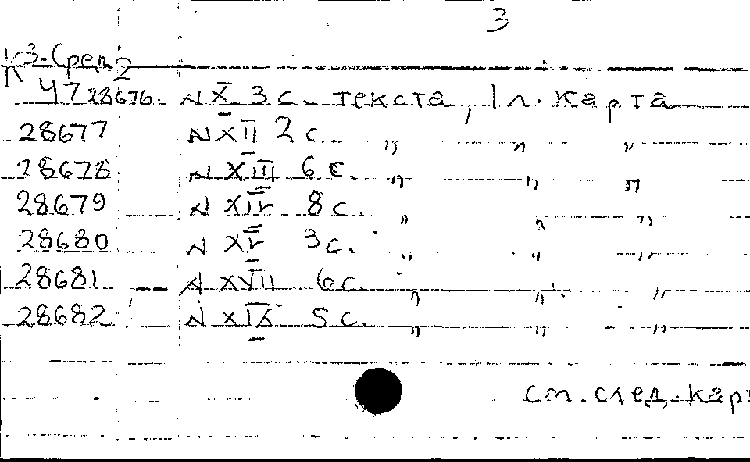 3
К 3-Сред 2
47 28676. N X 3 с. текста, 1 л. карта
28677 N XII 2 с. " " "
28678 N XIII 6 с. " " "
28679 N XIV 8 с. " " "
28680 N XV 3 с. " " "
28681 N XVII 6 с. " " "
28682 N XIX 5 с. " " "
см. след. кар